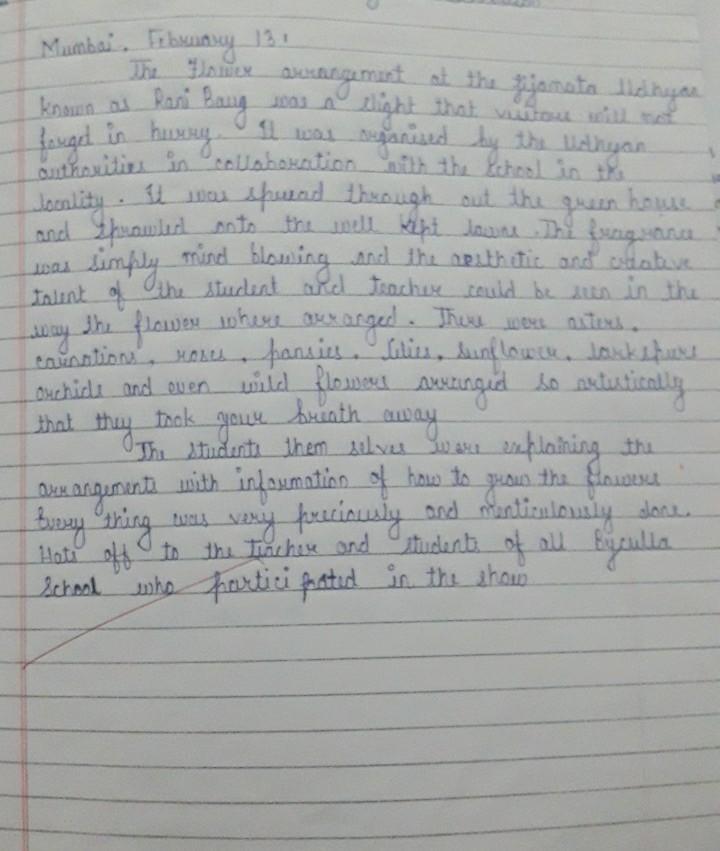 Mumbai. February 13.
The Flower arrangement at the Jijamata Udhyan
known as Rani Baug was a slight that visitors will not
forget in hurry. It was organised by the Udhyan
authorities in collaboration with the School in the
locality. It was spread through out the green house
and sprawled onto the well kept lawns. The fragrance
was simply mind blowing and the aesthetic and creative
talent of the student and teacher could be seen in the
way the flower where arranged. There were asters,
carnations, roses, pansies, lilies, sunflower, larkspurs
orchids and even wild flowers arranged so artistically
that they took your breath away
The students them selves were explaining the
arrangements with information of how to grow the flowers
Every thing was very preciously and menticulously done.
Hats off to the teacher and students of all Byculla
School who partici pated in the show